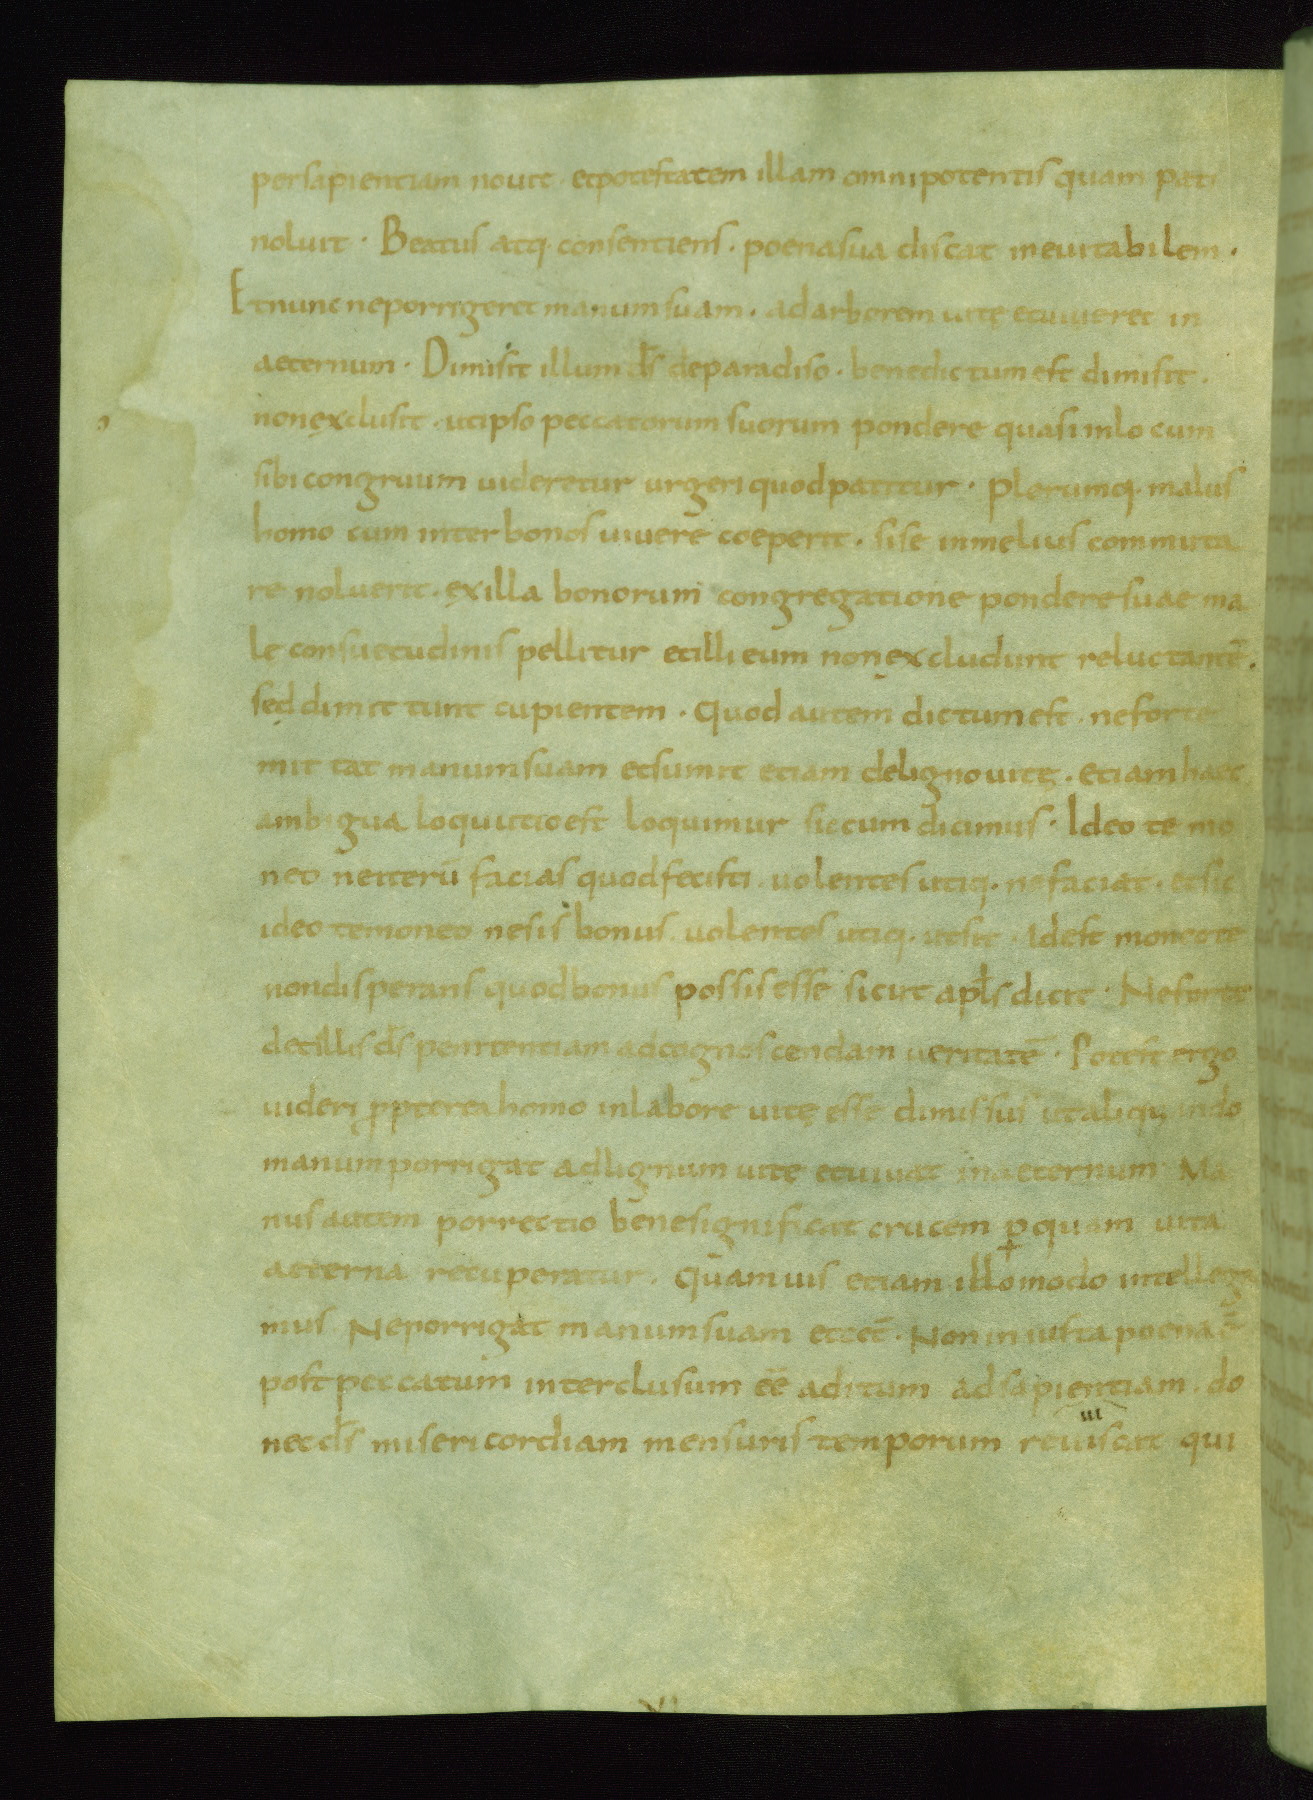 persapientiam nouit · etpotestatem illam omnipotentis quam pati
noluit · Beatus atq· consentiens · poenasua discat ineuitabilem ·
Etnunc neporrigeret manumsuam · adarborem uitę etuiueret in
aeternum · Dimisit illum d̄s deparadiso · benedictumest dimisit ·
nonexclusit · utipso peccatorum suorum pondere quasi inlocum
sibi congruum uideretur urgeri quodpatitur · Plerumq· malus
homo cum inter bonos uiuere coeperit · sise inmelius commuta
re noluerit · exilla bonorum congregatione pondere suae ma
le consuetudinis pellitur etilli eum nonexcludunt reluctantē ·
sed dimittunt cupientem · Quod autem dictumest · neforte
mittat manumsuam etsumit etiam delignouitę · etiamhaec
ambigua loquutioest loquimur siccum dicimus · Ideo te mo
neo neiterū facias quodfecisti · uolentes utiq· nefaciat · etsic
ideo temoneo nesis bonus · uolentes utiq· utsit · Idest moneote
nondisperans quodbonus possis esse sicut apl̄s dicit · Neforte
detillis d̄s penitentiam adcognoscendam ueritatē · Potest ergo
uideri ppterea homo inlabore uitę esse dimissus utaliquando
manumporrigat adlignum uitę etuiuat inaeternum Ma
nus autem porrectio benesignificat crucem p quam uita
aeterna recuperatur · Quamuis etiam illomodo intellega
mus Neporrigat manumsuam etcet̄ · Non iniusta poena ē
postpeccatum interclusum eē aditum adsapientiam · do
necd̄s misericordiam mensuris temporum reuiscat qui
ui